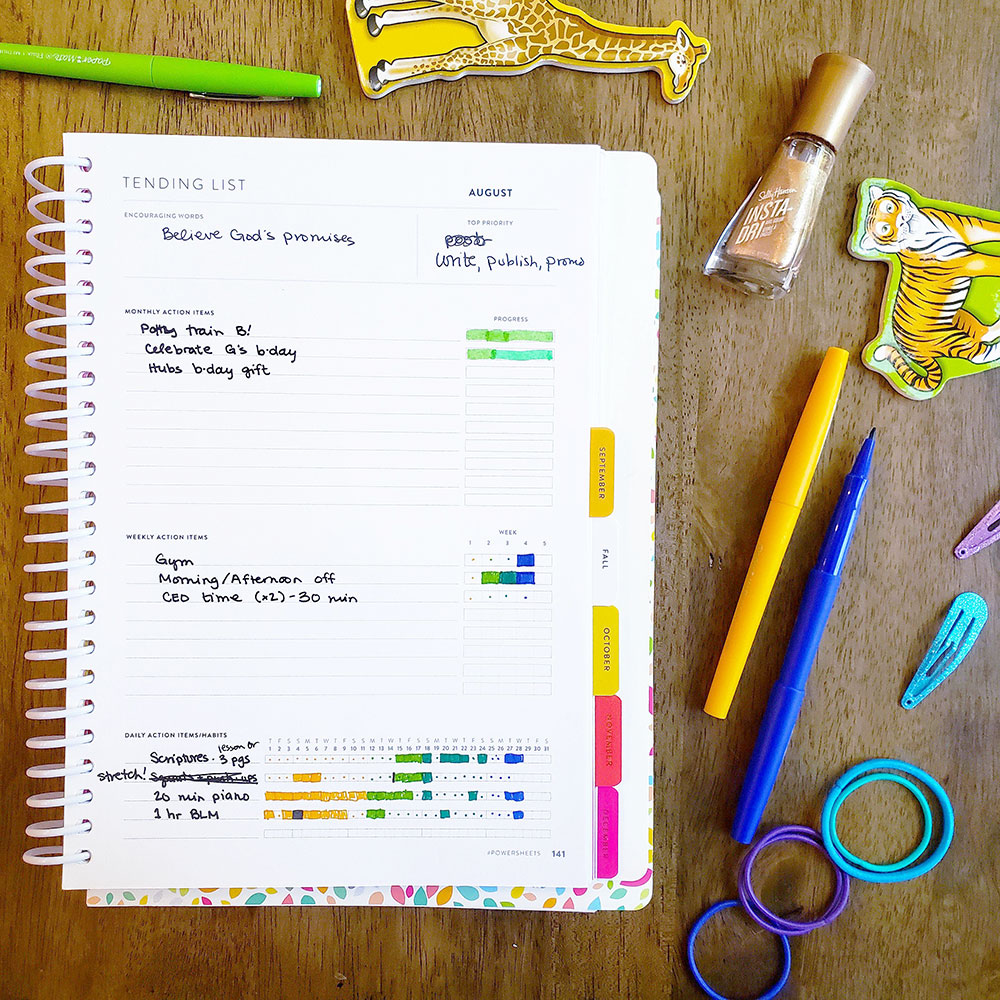 Paper Mate Flair
TENDING LIST
AUGUST
ENCOURAGING WORDS
TOP PRIORITY
Believe God's promises
Write, publish, promo
Sally Hansen
INSTA-
DRI
MONTHLY ACTION ITEMS
PROGRESS
Potty train B!
Celebrate G's b-day
Hubs b-day gift
SEPTEMBER
FALL
OCTOBER
NOVEMBER
DECEMBER
WEEKLY ACTION ITEMS
WEEK
1 2 3 4 5
Gym
Morning/Afternoon off
CEO time (x2) - 30 min
DAILY ACTION ITEMS/HABITS
T F S S M T W T F S S M T W T F S S M T W T F S S M T W T F S
1 2 3 4 5 6 7 8 9 10 11 12 13 14 15 16 17 18 19 20 21 22 23 24 25 26 27 28 29 30 31
lesson or
Scriptures - 3 pgs
stretch! Squats + push-ups
20 min piano
1 hr BLM
#POWERSHEETS 141